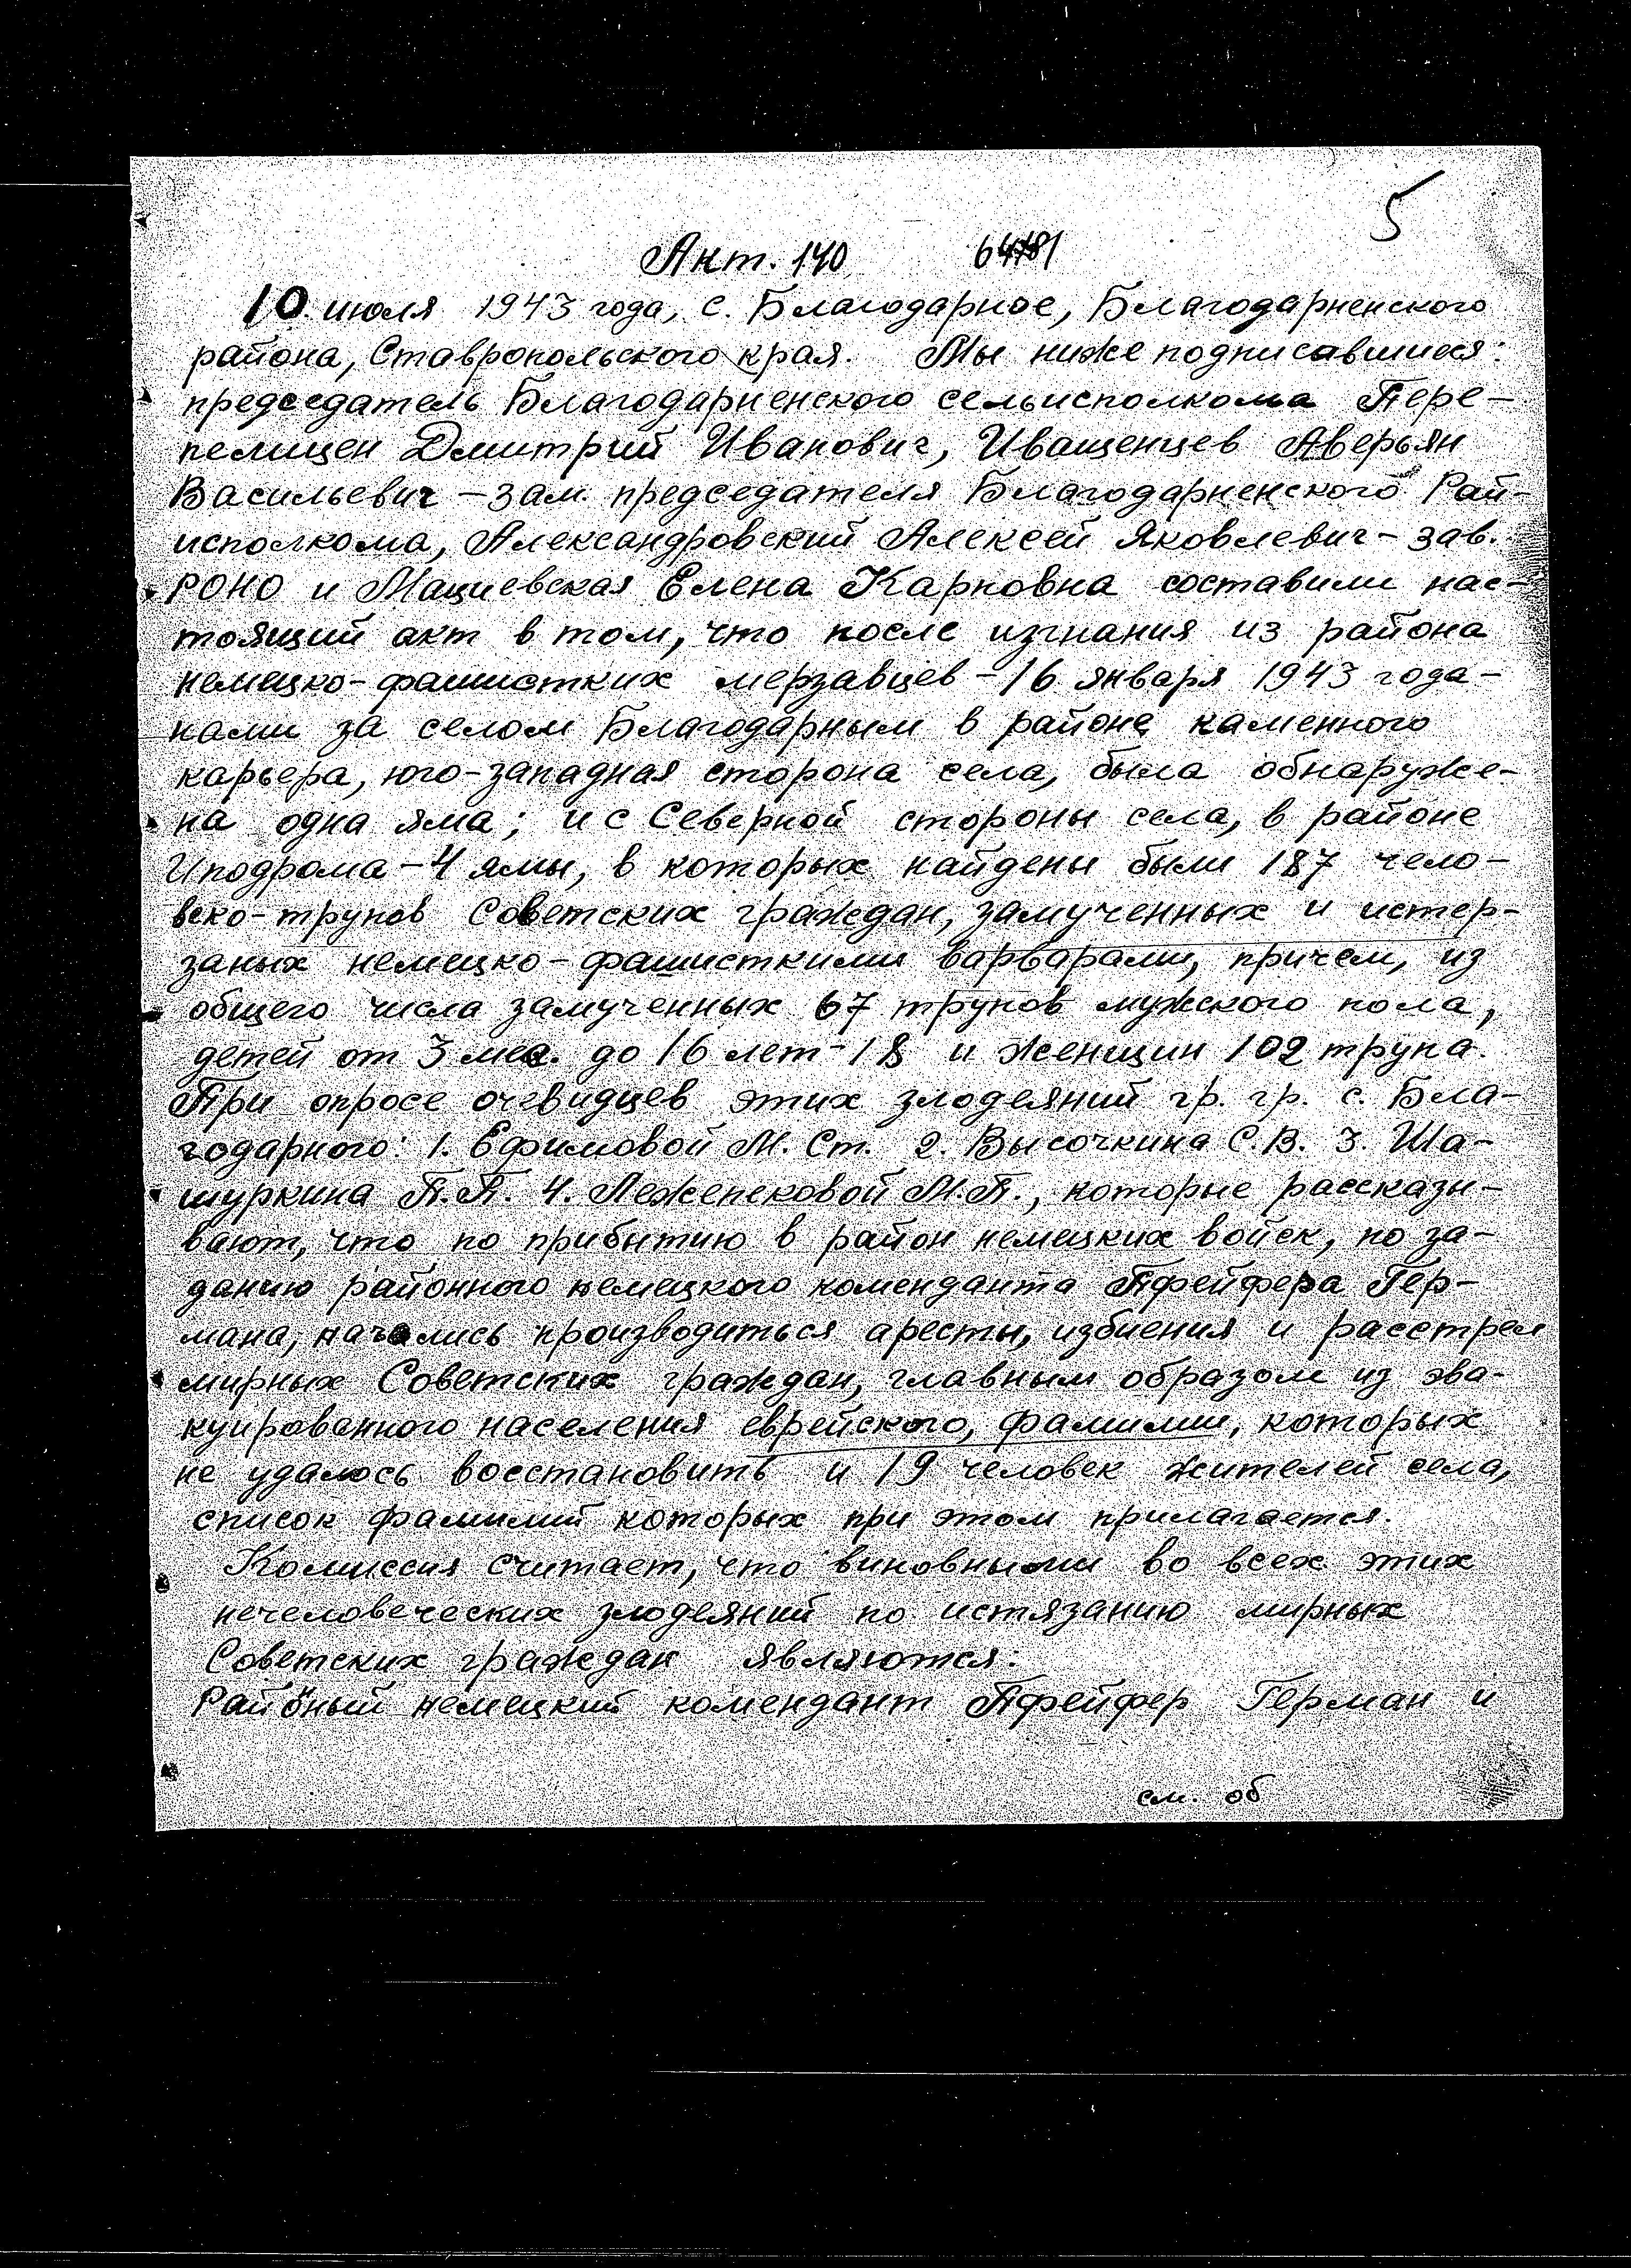 5
Акт. 140
10 июля 1943 года, с. Благодарное, Благодарненского
района, Ставропольского края. Мы ниже подписавшиеся:
председатель Благодарненского сельисполкома Пере-
пелицен Дмитрий Иванович, Иващенцев Аверьян
Васильевич – зам. председателя Благодарненского Рай-
исполкома, Александровский Алексей Яковлевич – зав.
РОНО и Мациевская Елена Карповна составили нас-
тоящий акт в том, что после изгнания из района
немецко-фашистких мерзавцев – 16 января 1943 года –
нами за селом Благодарным в районе каменного
карьера, юго-западная сторона села, была обнаруже-
на одна яма; и с Северной стороны села, в районе
Иподрома – 4 ямы, в которых найдены были 187 чело-
веко-трупов Советских граждан, замученных и истер-
заных немецко-фашисткими варварами, причем, из
общего числа замученных 67 трупов мужского пола,
детей от 3 мес. до 16 лет – 18 и женщин 102 трупа.
При опросе очевидцев этих злодеяний гр. гр. с. Бла-
годарного: 1. Ефимовой М. Ст. 2. Высочкина С.В. 3. Ша-
шуркина П.П. 4. Лежепековой М.П., которые рассказы-
вают, что по прибытию в район немецких войск, по за-
данию районного немецкого коменданта Пфейфера Гер-
мана, начались производиться аресты, избиения и расстрел
мирных Советских граждан, главным образом из эва-
куированного населения еврейского, фамилии, которых
не удалось восстановить и 19 человек жителей села,
список фамилий которых при этом прилагается.
Комиссия считает, что виновными во всех этих
нечеловеческих злодеяний по истязанию мирных
Советских граждан являются:
Районый немецкий комендант Пфейфер Герман и
см. об